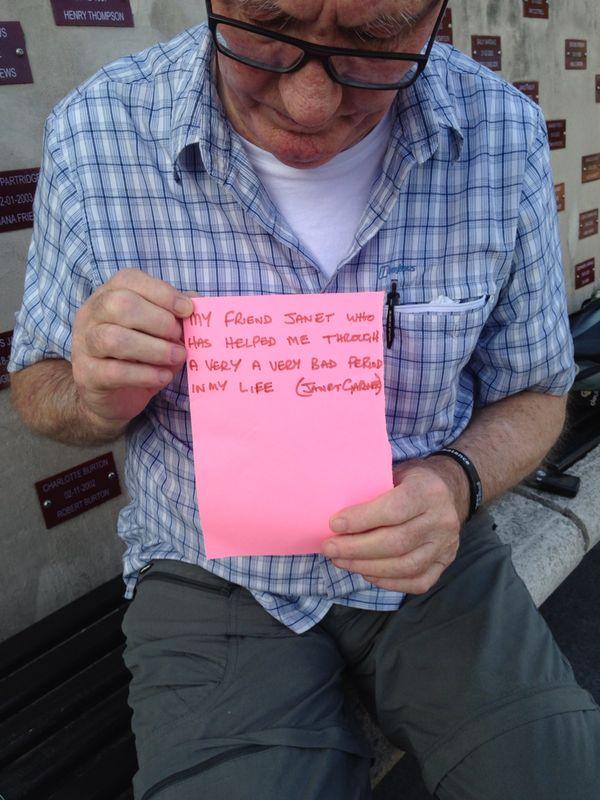 HENRY THOMPSON
EWS
PARTRIDGE
2-01-2003
ANA FRIE
CHARLOTTE BURTON
02-11-2002
ROBERT BURTON
MY FRIEND JANET WHO
HAS HELPED ME THROUGH
A VERY A VERY BAD PERIOD
IN MY LIFE (JANET GARNER)